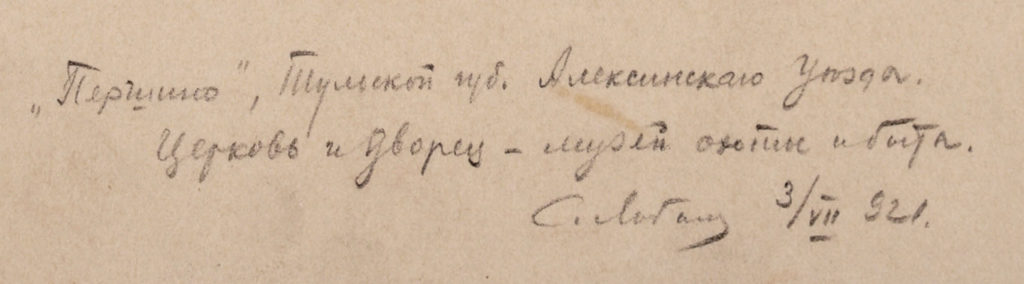 „Першино", Тульской губ. Алексинскаго Уѣзда.
Церковь и Дворец - музей охоты и быта.
С. Лобан 3/VII 921.